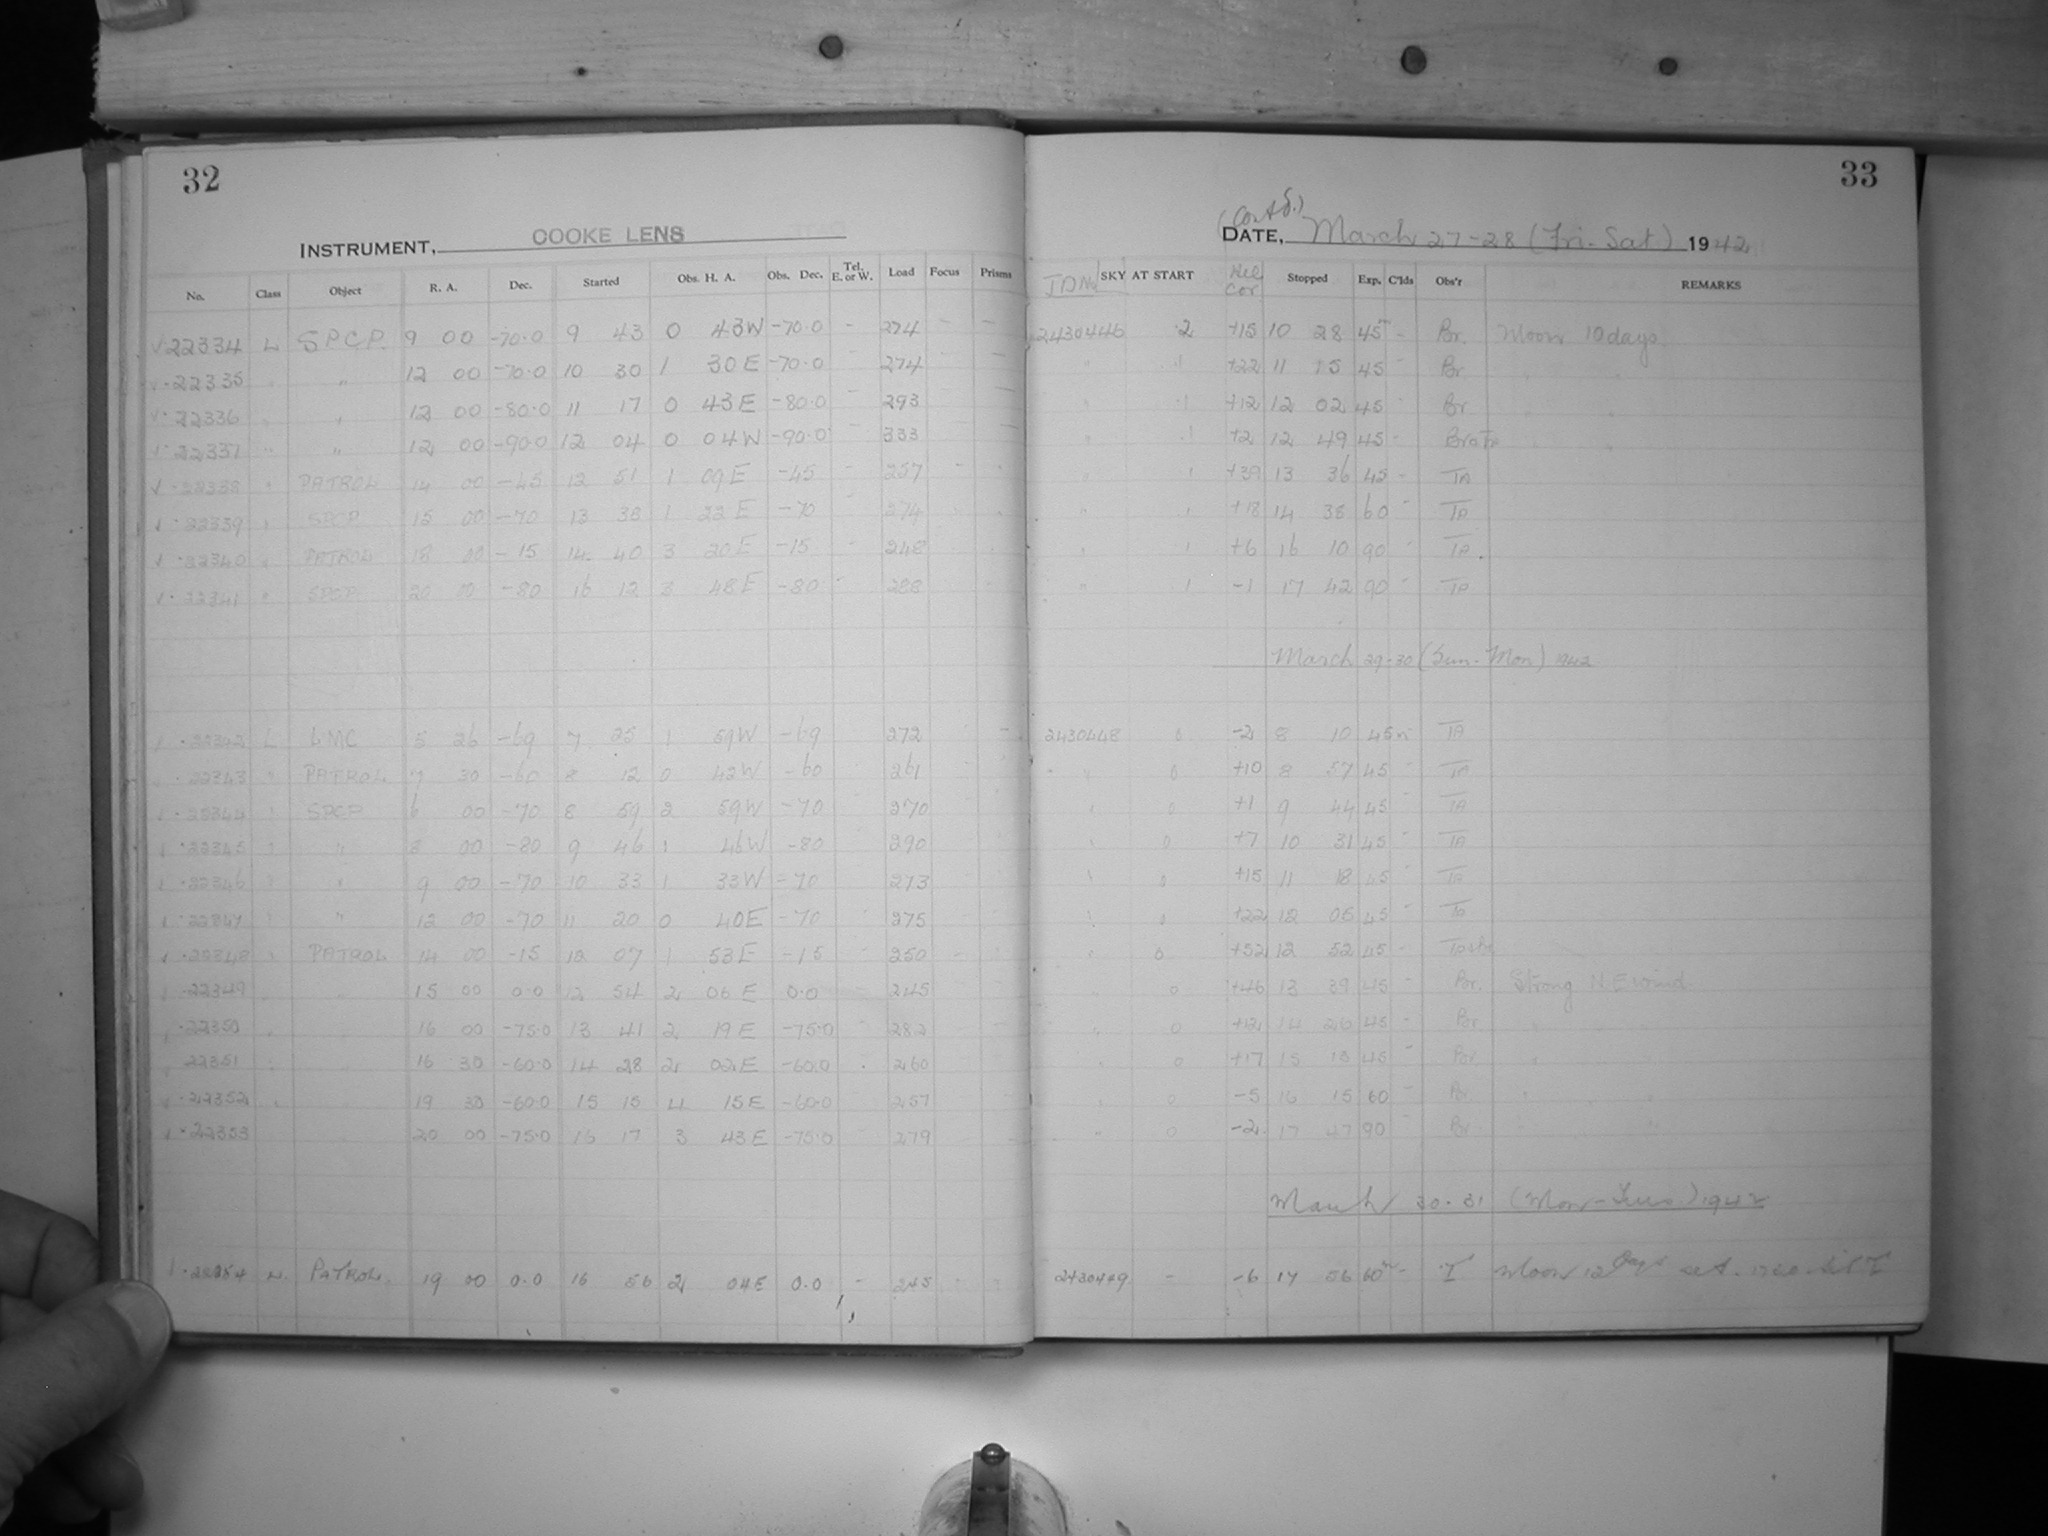 32
INSTRUMENT, COOKE LENS
No. Class Object R. A. Dec. Started Obs. H. A. Obs. Dec. Tel. E. or W. Load Focus Prisms
22334 L SPCP. 9 00 -70.0 9 43 0 43W -70.0 - 274 - -
22335 " 12 00 -70.0 10 30 1 30E -70.0 274
22336 " 12 00 -80.0 11 17 0 43E -80.0 293
22337 " " 12 00 -90.0 12 04 0 04W -90.0 333
22338 " PATROL 14 00 -45 12 51 1 09E -45 257
22339 " SPCP 15 00 -70 13 38 1 22E -70 274
22340 " PATROL 18 00 -15 14 40 3 20E -15 248
22341 " SPCP 20 00 -80 16 12 3 48E -80 288
22342 L LMC 5 26 -69 7 25 1 59W -69 272
22343 " PATROL 7 30 -60 8 12 0 42W -60 261
22344 " SPCP 6 00 -70 8 59 2 59W -70 270
22345 " " 8 00 -80 9 46 1 46W -80 290
22346 " " 9 00 -70 10 33 1 33W -70 273
22347 " " 12 00 -70 11 20 0 40E -70 275
22348 " PATROL 14 00 -15 12 07 1 53E -15 250
22349 15 00 0.0 12 54 2 06E 0.0 245
22350 16 00 -75.0 13 41 2 19E -75.0 282
22351 16 30 -60.0 14 28 2 02E -60.0 260
22352 19 30 -60.0 15 15 4 15E -60.0 257
22353 20 00 -75.0 16 17 3 43E -75.0 279
22354 PATROL. 19 00 0.0 16 56 2 04E 0.0 - 245
33
(Contd.)
DATE, March 27-28 (Fri-Sat) 1942
JDN SKY AT START Hel Cor Stopped Exp. C'lds Obs'r REMARKS
2430446 2 +15 10 28 45m - Br. Moon 10 days.
" 1 +22 11 15 45 - Br " "
" 1 +12 12 02 45 - Br " "
" 1 +2 12 49 45 - " "
" 1 +39 13 36 45 - TA
" 1 +18 14 38 60 - TA
" 1 +6 16 10 90 - TA
" 1 -1 17 42 90 - TA
March 29-30 (Sun-Mon) 1942
2430448 0 -2 8 10 45m TA
" 0 +10 8 57 45 - TA
" 0 +1 9 44 45 - TA
" 0 +7 10 31 45 - TA
" 0 +15 11 18 45 - TA
" 0 +22 12 05 45 - TA
" 0 +52 12 52 45 -
" 0 +46 13 39 45 - Br. Strong N.E wind.
" 0 +12 14 26 45 - Br " "
" 0 +17 15 13 45 - Br " "
" 0 -5 16 15 60 - Br " "
" 0 -2 17 47 90 - Br "
March 30-31 (Mon-Tues) 1942
2430449 - -6 17 56 60m - T Moon 12 Days set.